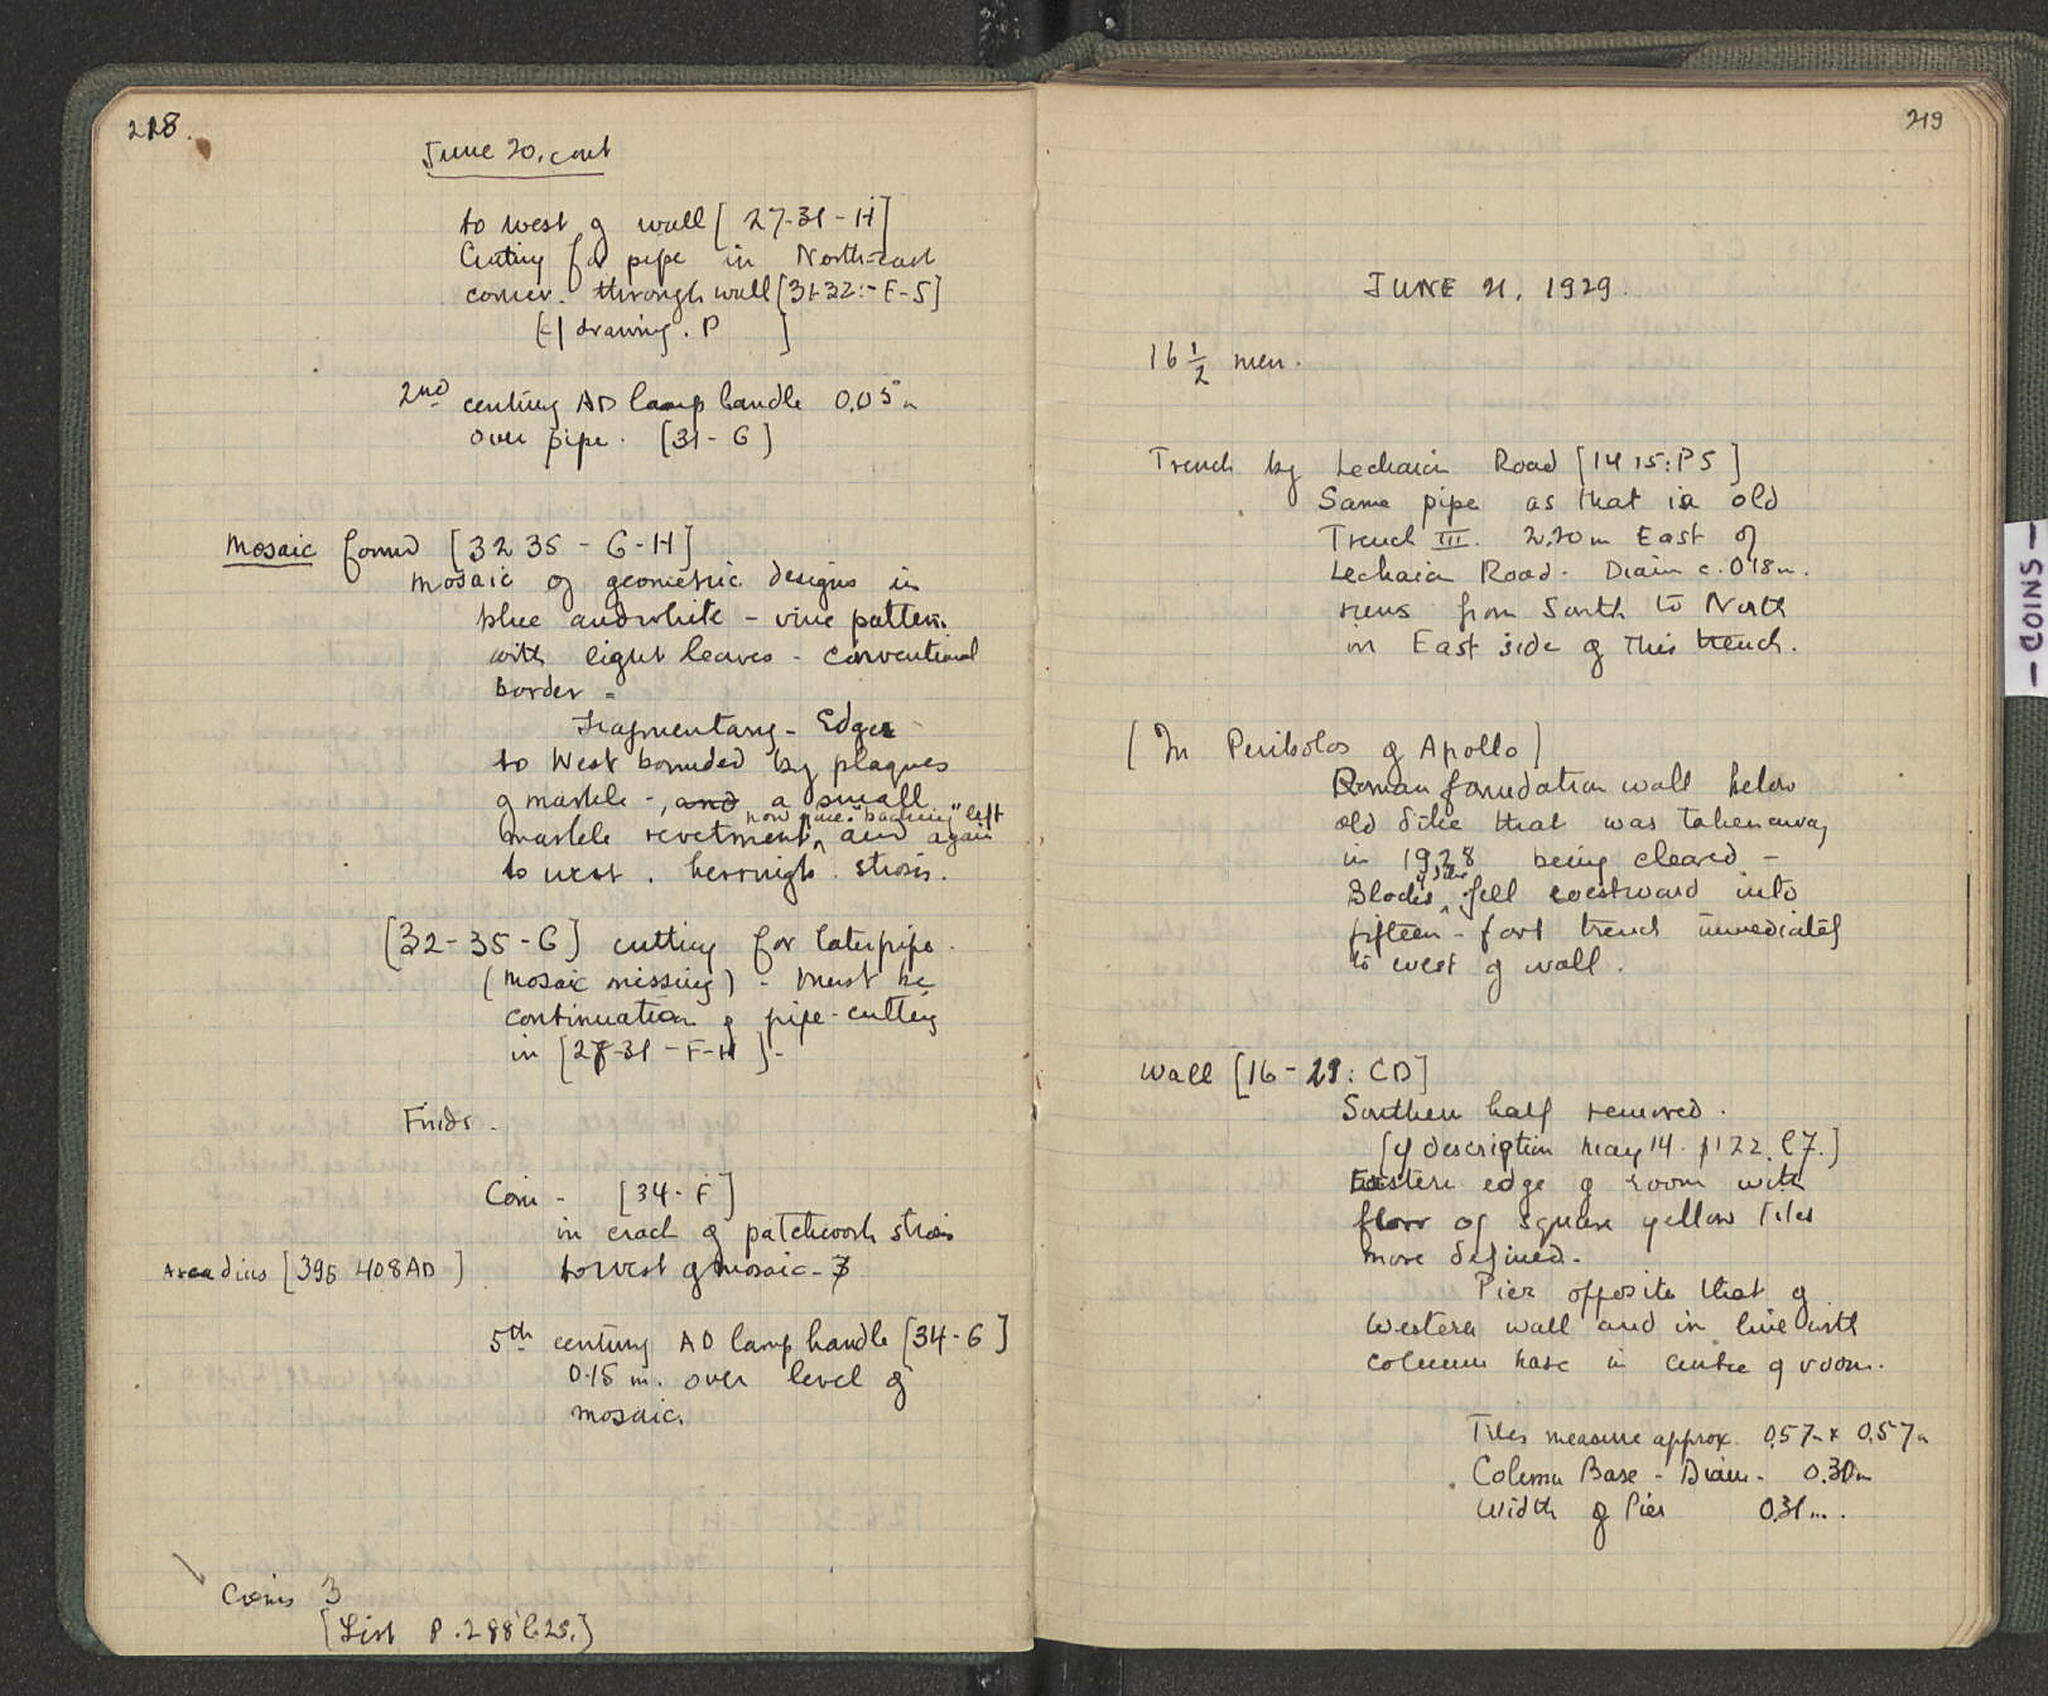 218.
June 20. cont
to west of wall [ 27-31 - H]
Cutting for pipe in North-east
corner. through wall [31-32:- F-S]
[cf drawing. P ]
2nd century AD lamp handle 0.05 m
over pipe. [31 - G]
Mosaic found [32 35 - G-H]
mosaic of geometric designs in
blue and white - vine pattern
with light leaves - conventional
border -
Fragmentary - Edges
to West bounded by plaques
of marble -, and a small
now gone. "backing" left
marble revetment, and again
to west. herringb. strosis.
[32-35-G] cutting for later pipe.
(mosaic missing) - must be
continuation of pipe-cutting
in [27-31 - F-H ] -
Finds -
Coin - [34 - F]
in crack of patchwork strosis
Arcadius [395 408 AD ] to west of mosaic - 3
5th century AD lamp handle [34-G]
0.15 m. over level of
mosaic.
Coins 3
[List P. 288 l. 25.]
219
JUNE 21, 1929.
16 1/2 men.
Trench by Lechaion Road [14 15: PS]
Same pipe as that in old
Trench III. 2.20 m East of
Lechaion Road. Diam c. 0.18 m.
runs from South to North
in East side of this trench.
[In Peribolos of Apollo]
Roman foundation wall below
old dike that was taken away
in 1928 being cleared -
of dike
Blocks fell westward into
fifteen-foot trench immediately
to west of wall.
Wall [16 - 29: CD]
Southern half removed.
[cf description May 14. p 122. l 7.]
Eastern edge of room with
floor of square yellow tiles
more defined -
Pier opposite that of
Western wall and in line with
column base in centre of room.
Tiles measure approx. 0.57 m x 0.57 m
Column Base - Diam - 0.30 m
Width of Pier 0.31 m.
- COINS -